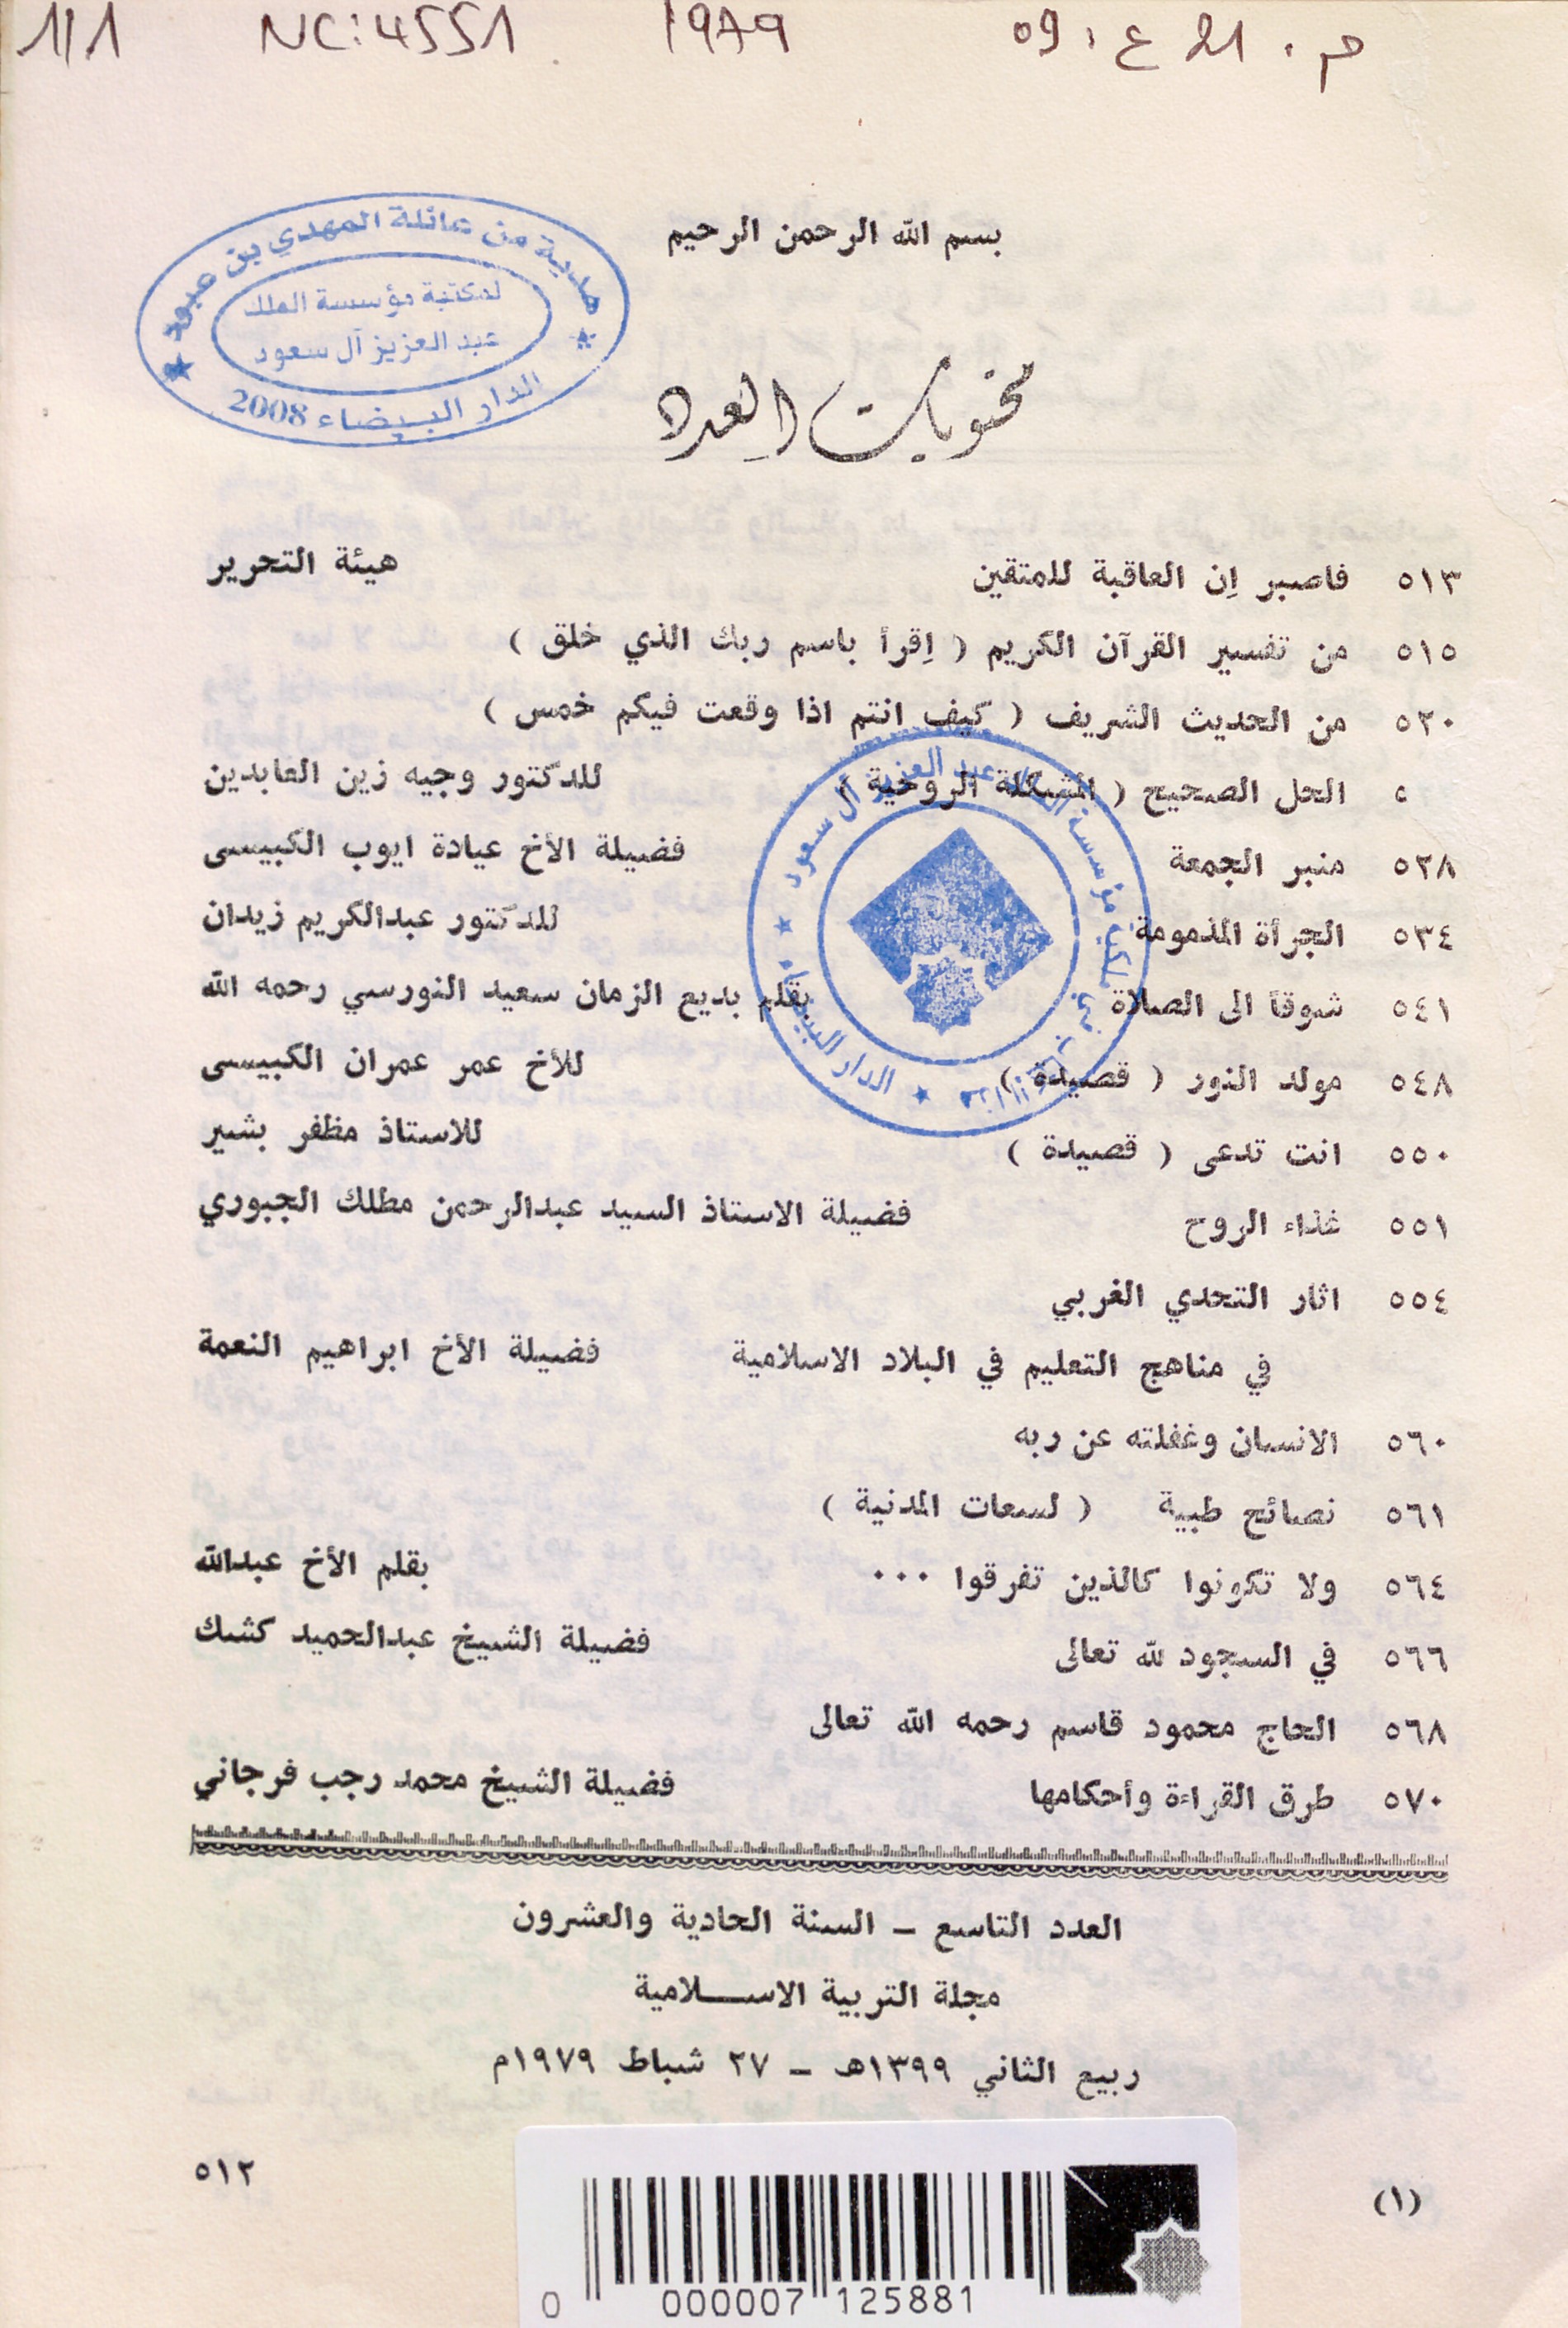 م . 21 ع : 09 1979 NC:4551 1/1
بسم الله الرحمن الرحيم
هدية من عائلة المهدي بن عبود
لمكتبة مؤسسة الملك
عبد العزيز آل سعود
الدار البيضاء 2008
محتويات العدد
٥١٣ فاصبر إن العاقبة للمتقين هيئة التحرير
٥١٥ من تفسير القرآن الكريم ( إقرأ باسم ربك الذي خلق )
٥٢٠ من الحديث الشريف ( كيف انتم اذا وقعت فيكم خمس )
٥ الحل الصحيح ( المشكلة الروحية ) للدكتور وجيه زين العابدين
٥٢٨ منبر الجمعة فضيلة الأخ عيادة ايوب الكبيسى
٥٣٤ الجرأة المذمومة للدكتور عبدالكريم زيدان
٥٤١ شوقاً الى الصلاة بقلم بديع الزمان سعيد النورسي رحمه الله
٥٤٨ مولد النور ( قصيدة ) للأخ عمر عمران الكبيسى
٥٥٠ انت تدعى ( قصيدة ) للاستاذ مظفر بشير
٥٥١ غذاء الروح فضيلة الاستاذ السيد عبدالرحمن مطلك الجبوري
٥٥٤ اثار التحدي الغربي
في مناهج التعليم في البلاد الاسلامية فضيلة الأخ ابراهيم النعمة
٥٦٠ الانسان وغفلته عن ربه
٥٦١ نصائح طبية ( لسعات المدنية )
٥٦٤ ولا تكونوا كالذين تفرقوا ... بقلم الأخ عبدالله
٥٦٦ في السجود لله تعالى فضيلة الشيخ عبدالحميد كشك
٥٦٨ الحاج محمود قاسم رحمه الله تعالى
٥٧٠ طرق القراءة وأحكامها فضيلة الشيخ محمد رجب فرجاني
مؤسسة الملك عبد العزيز آل سعود
الدار البيضاء
العدد التاسع – السنة الحادية والعشرون
مجلة التربية الاســـلامية
ربيع الثاني ١٣٩٩هـ – ٢٧ شباط ١٩٧٩م
(١) ٥١٢
0 000007 125881